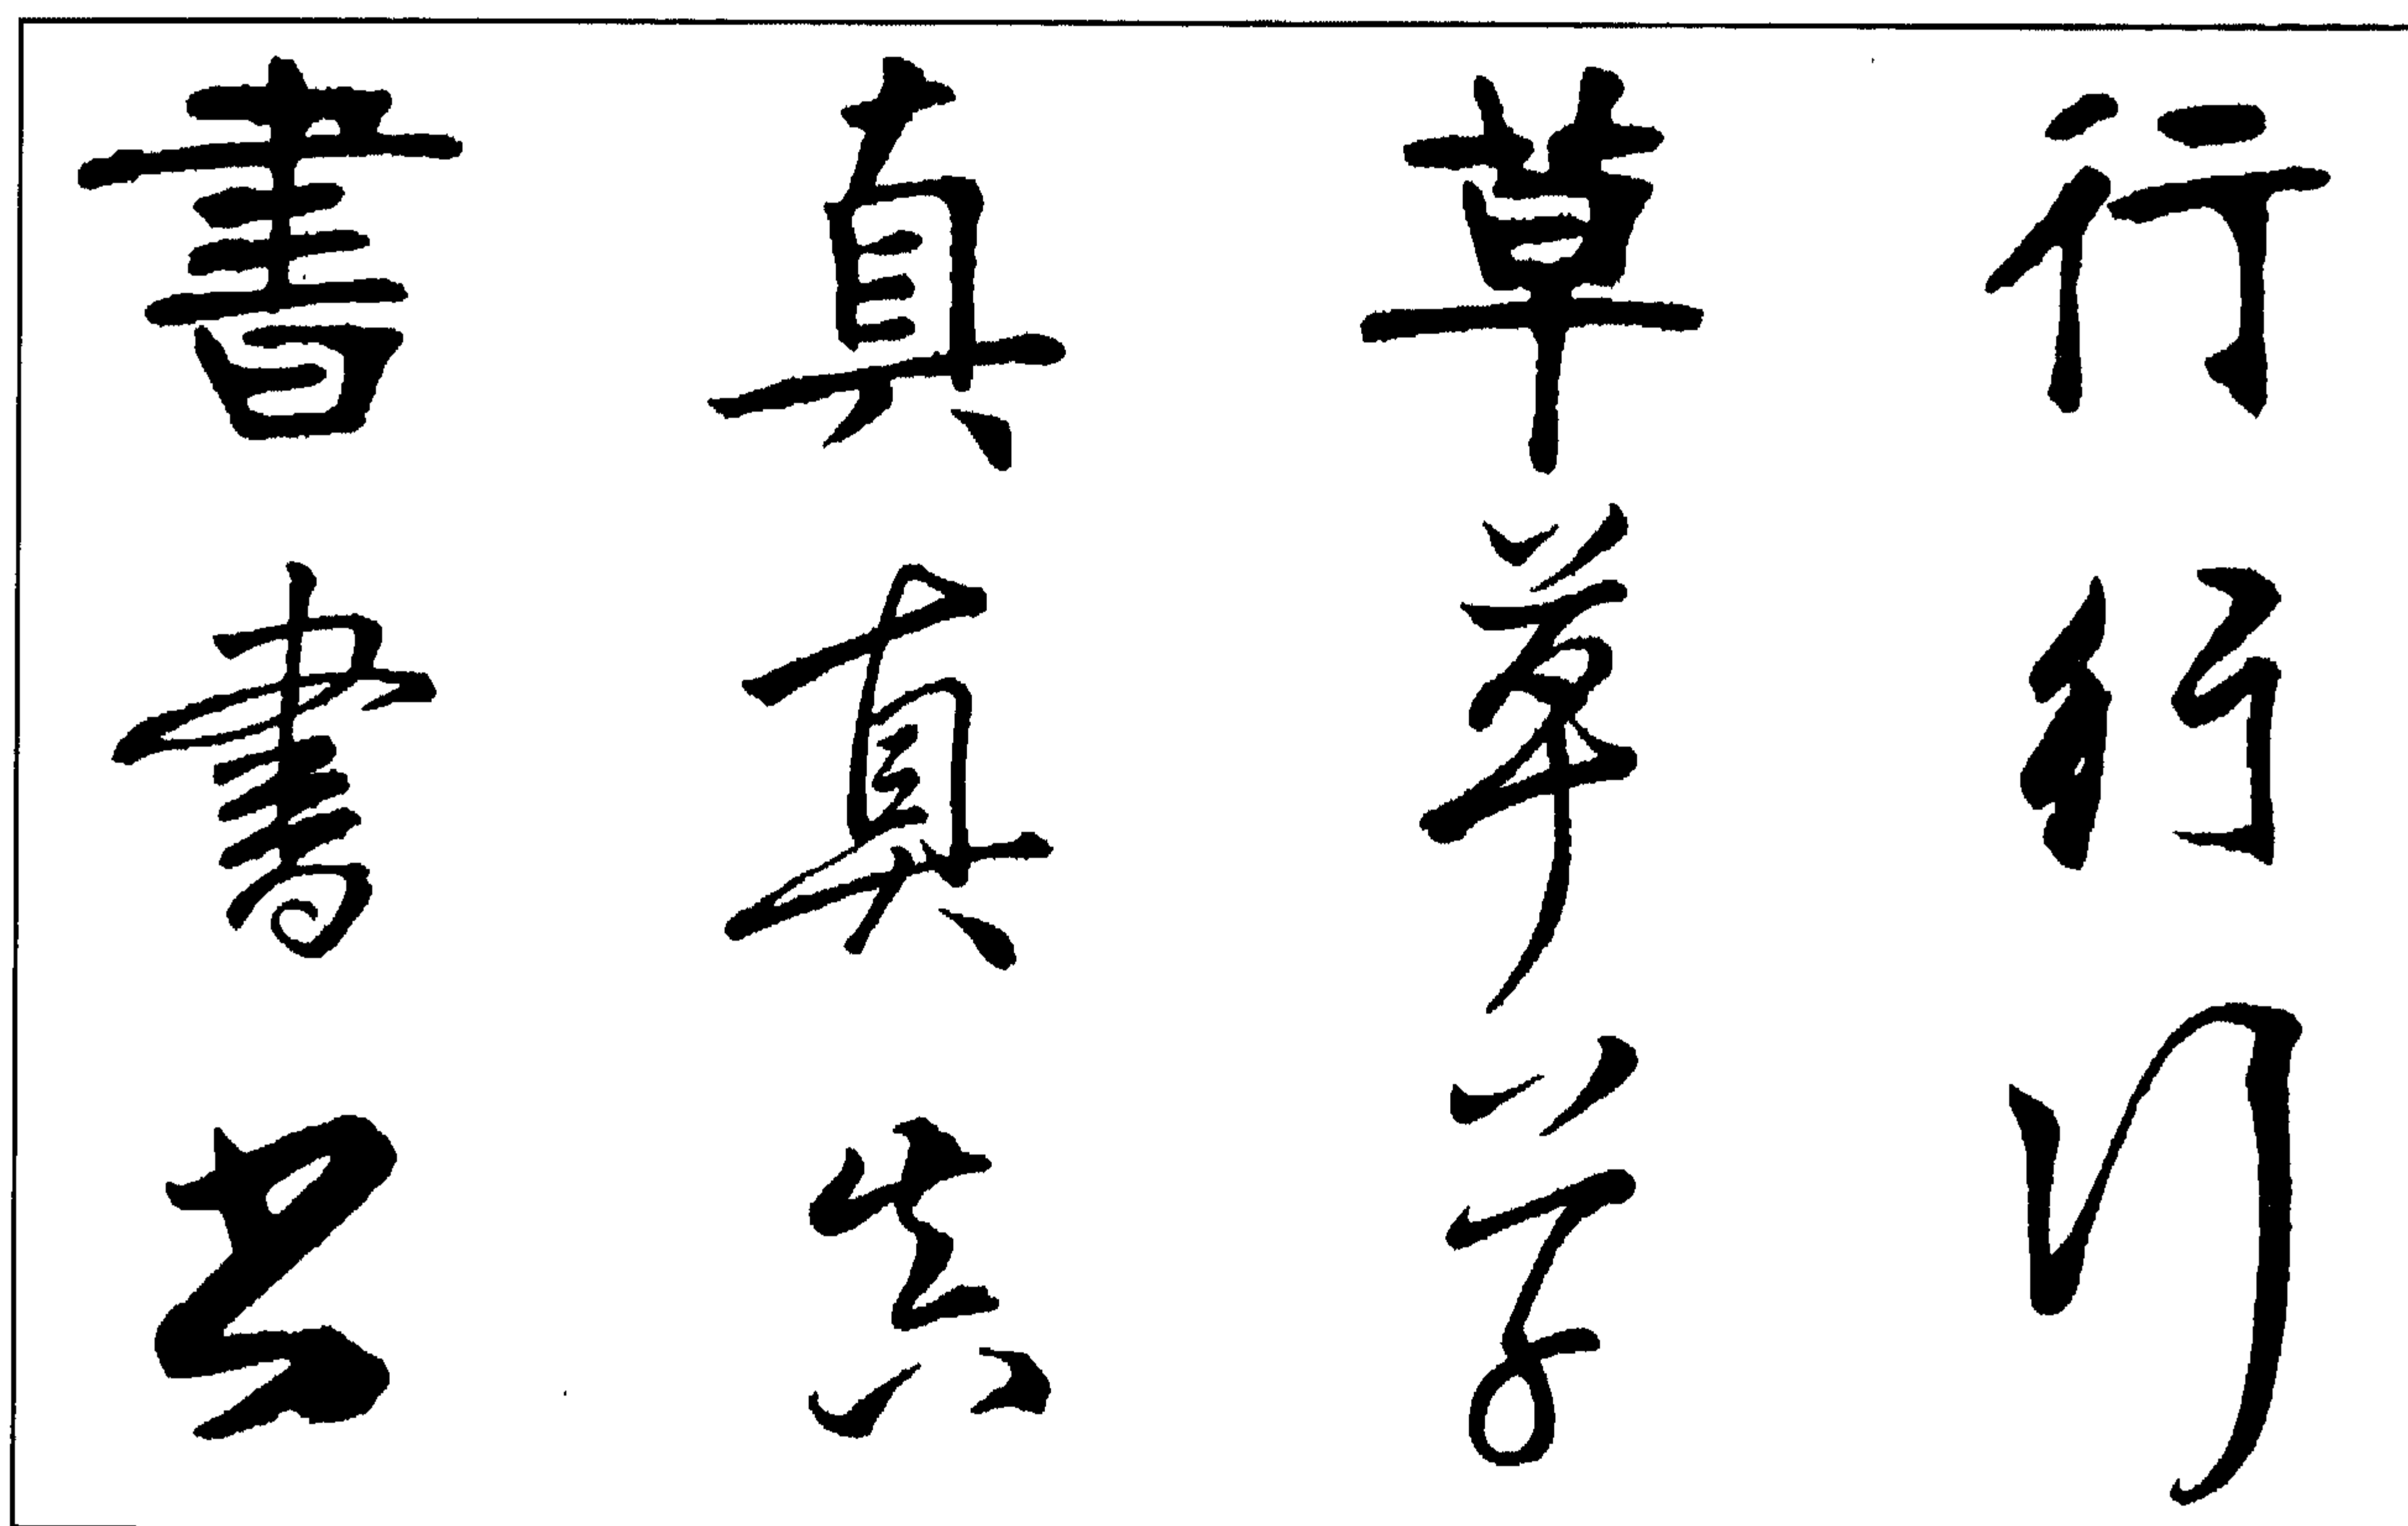 行行行
草草草
真真真
書書書